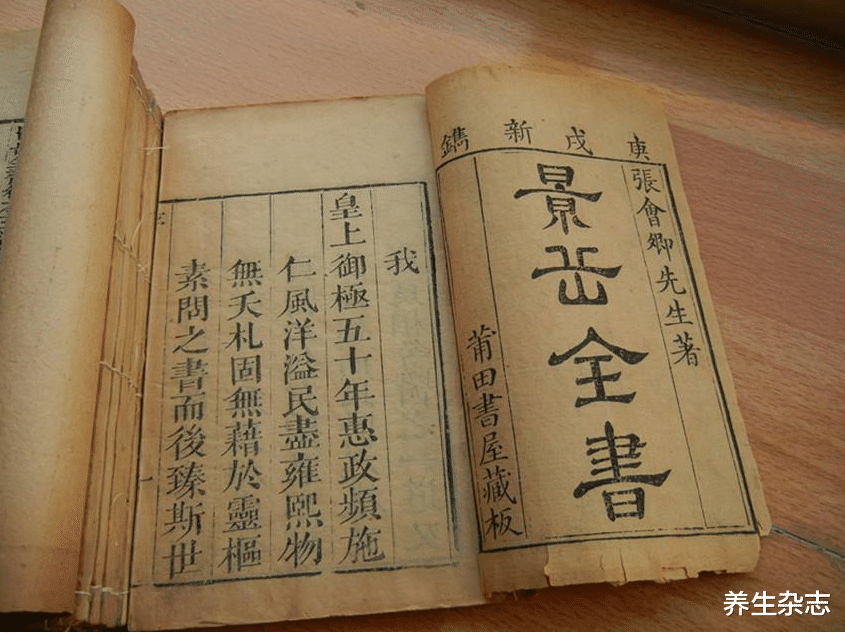 庚戌新鐫
張會卿先生著
景岳全書
莆田書屋藏板
我
皇上御極五十年惠政頻施
仁風洋溢民盡雍熙物
無夭札固無藉於靈樞
素問之書而後臻斯世
养生杂志